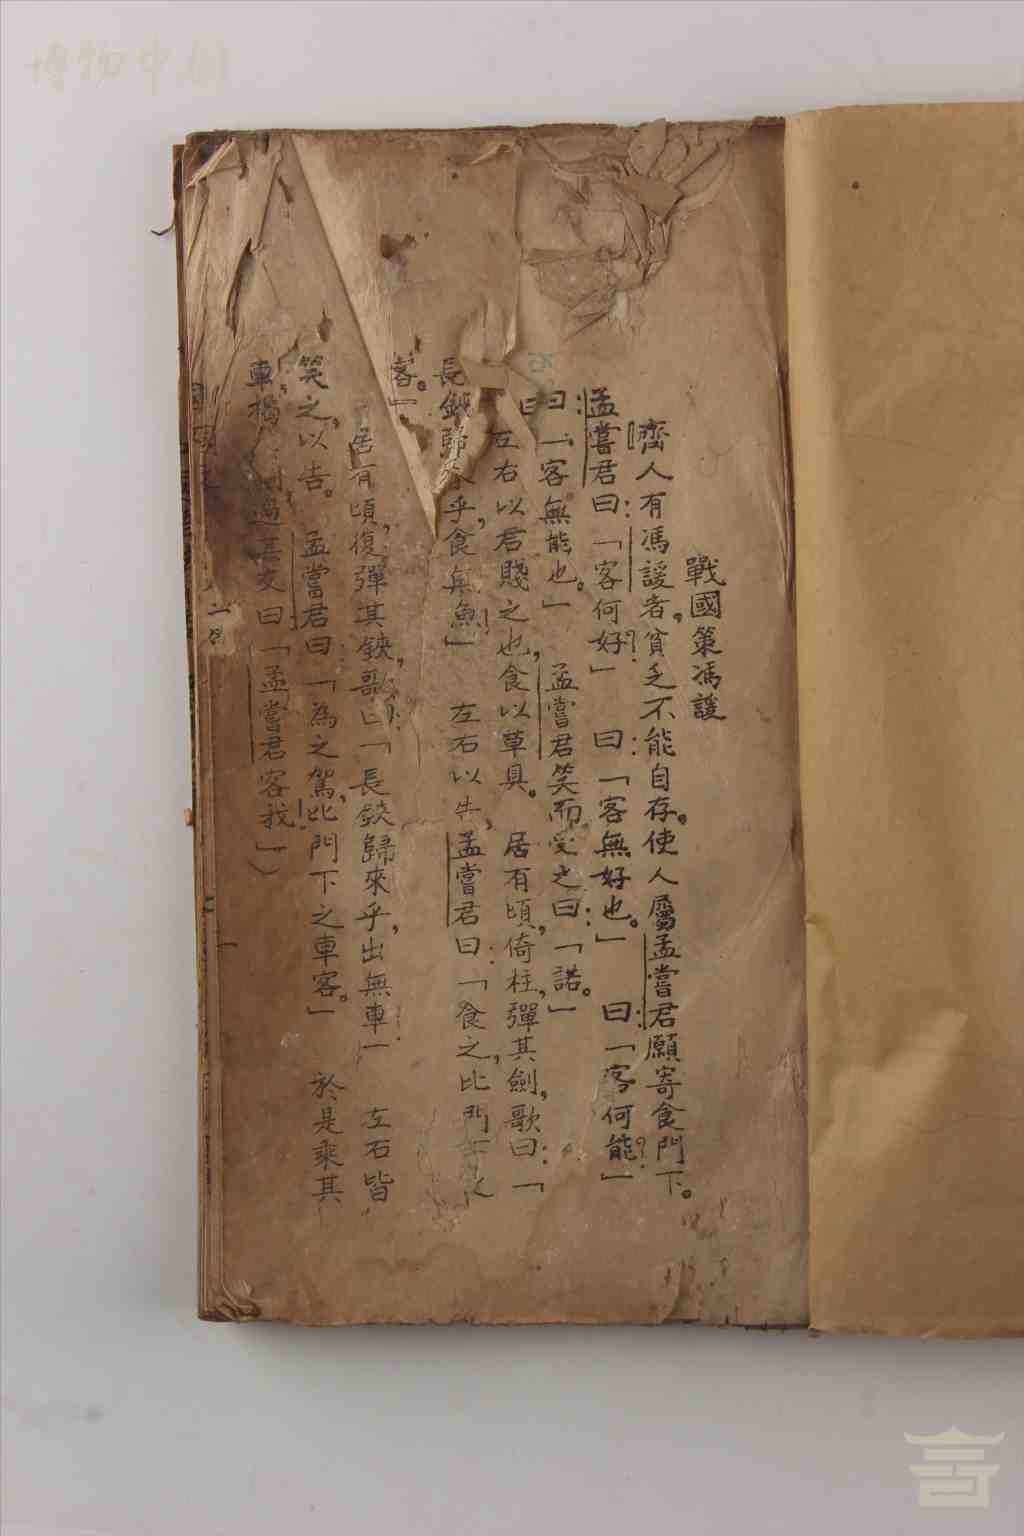 戰國策馮諼
齊人有馮諼者，貧乏不能自存。使人屬孟嘗君願寄食門下。
孟嘗君曰：「客何好？」　曰：「客無好也。」　曰：「客何能？」
曰：「客無能也。」　孟嘗君笑而受之曰：「諾。」
左右以君賤之也，食以草具。　居有頃，倚柱，彈其劍，歌曰：「
長鋏歸來乎，食無魚！」　左右以告，孟嘗君曰：「食之，比門
客。」
居有頃，復彈其鋏，歌曰：「長鋏歸來乎，出無車！　左右皆
笑之，以告。　孟嘗君曰：「為之駕，比門下之車客。」　於是乘其
車，揭　過其友曰「孟嘗君客我！」）
博物中國